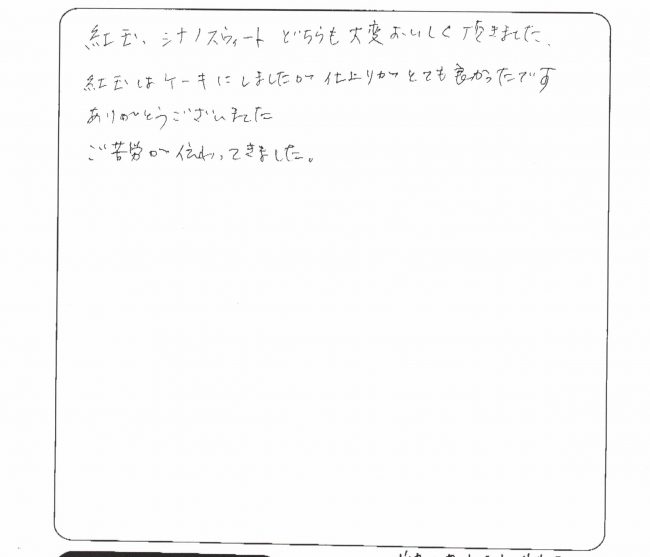 紅玉、シナノスウィートどちらも大変おいしく頂きました、
紅玉はケーキにしましたが仕上りがとても良かったです
ありがとうございました
ご苦労が伝わってきました。